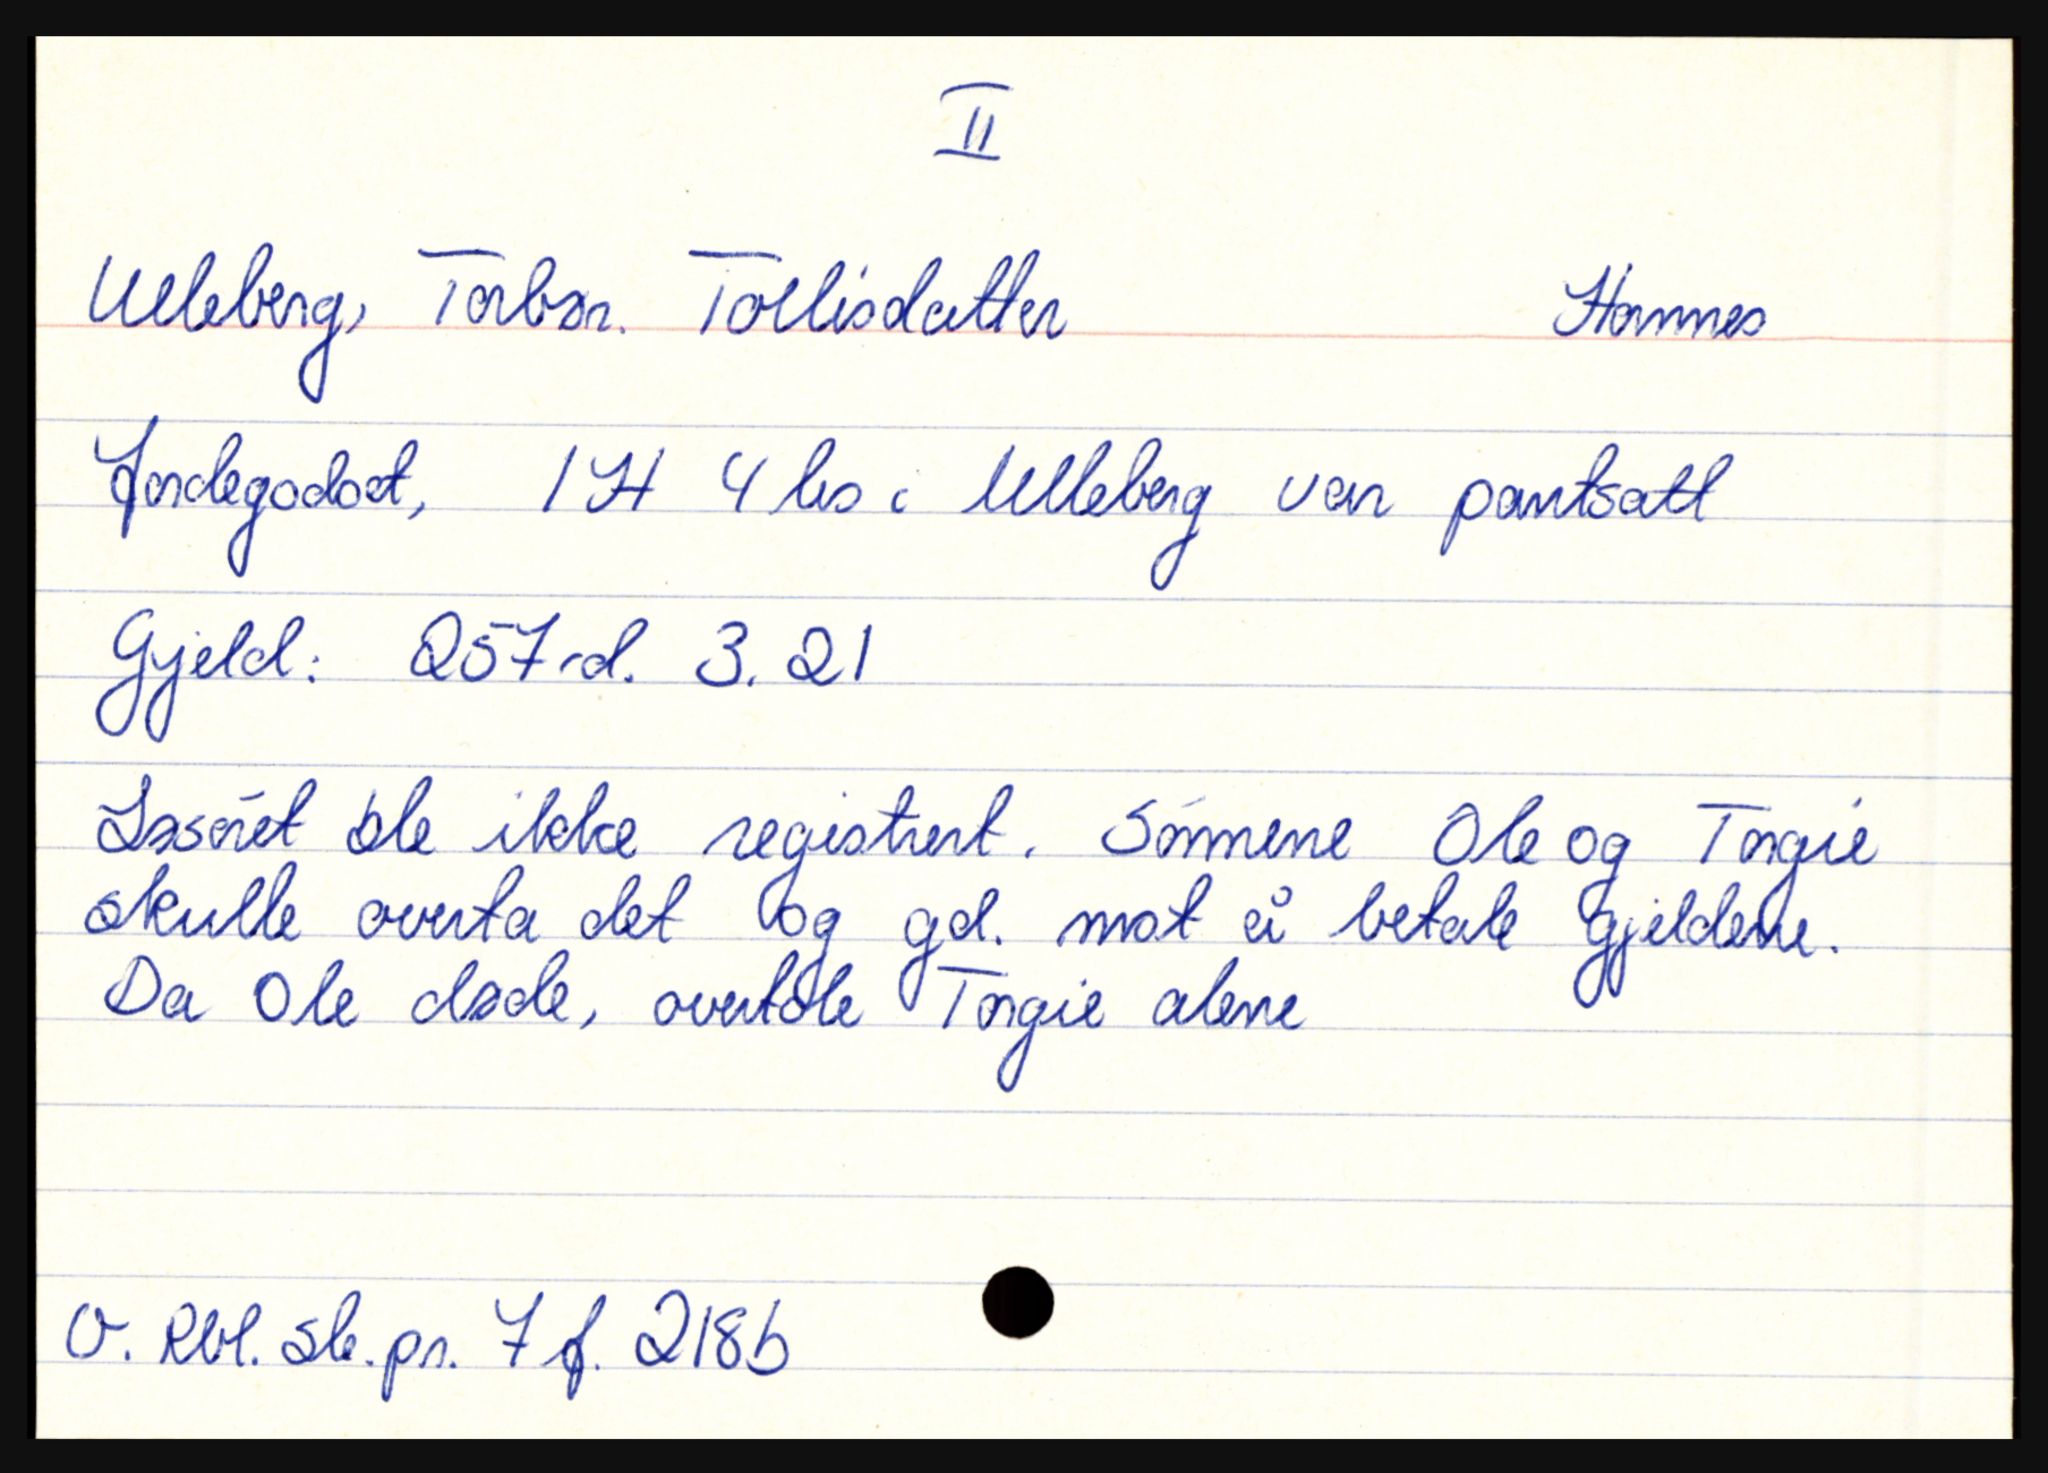 II
Ulleberg, Torbør. Tollisdatter Homnes
Jordegodset, 1 H 4 ks i Ulleberg var pantsatt
Gjeld: 257 rd. 3. 21
Løsøret ble ikke registrert. Sønnene Ole og Torgie
skulle overta det og gd. mot å betale gjeldene.
Da Ole døde, overtok Torgie alene
V. Rbl. sk.pr. 7 f. 218b